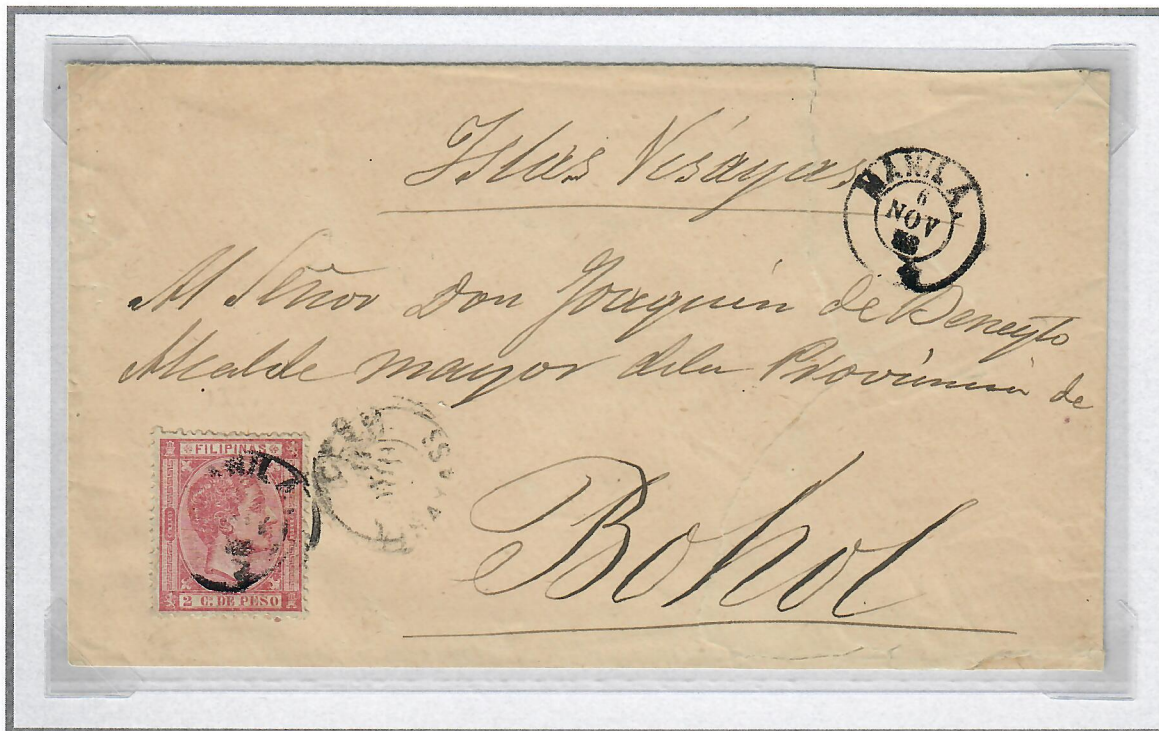 Islas Visayas
MANILA
6
NOV
Al Señor Don Joaquin de Beneyto
Alcalde mayor dela Provincia de
Bohol
FILIPINAS
MANILA
2 C. DE PESO